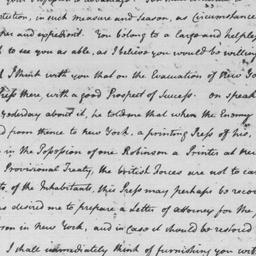 tection, in such measure and season, as Circumstance
per and expedient. You belong to a large and helpless
to see you as able, as I believe you would be willing
I think with you that on the Evacuation of New Yo
Press there, with a good Prospect of Success. On speak
yesterday about it, he told me that when the Enemy
d from thence to New York, a printing Press of his,
in the Possession of one Robinson a Printer at New
Provisional Treaty, the British Forces are not to car
of the Inhabitants, this Press may perhaps be recov
as desired me to prepare a Letter of attorney for the p
son in New York, and in case it should be restored
I shall immediately think of furnishing you with